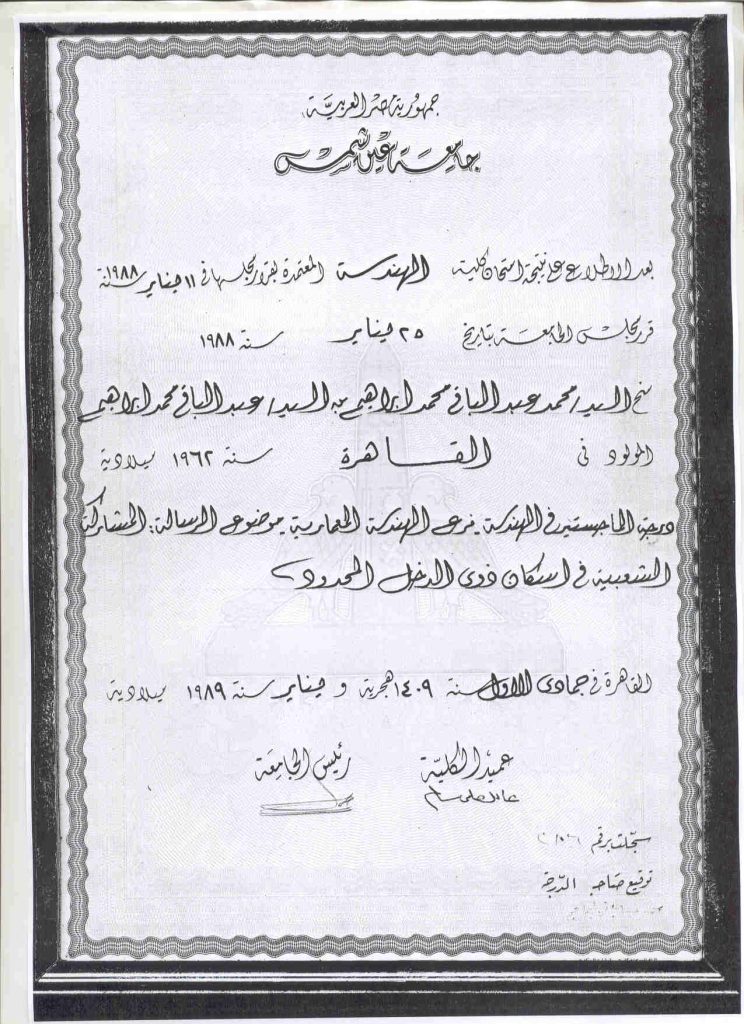 جمهورية مصر العربية
جامعة عين شمس
بعد الاطلاع على نتيجة امتحان كلية الهندسة المعتمدة بقرار مجلسها في ١١ يناير سنة ١٩٨٨
قرر مجلس الجامعة بتاريخ ٢٥ يناير سنة ١٩٨٨
منح السيد/ محمد عبد الباقى محمد ابراهيم بن السيد/ عبد الباقى محمد ابراهيم
المولود فى القاهرة سنة ١٩٦٢ ميلادية
درجة الماجستير فى الهندسة فرع الهندسة المعمارية موضوع الرسالة: المشاركة
الشعبية فى اسكان ذوى الدخل المحدود
القاهرة فى جمادى الاول سنة ١٤٠٩ هجرية و يناير سنة ١٩٨٩ ميلادية
عميد الكلية رئيس الجامعة
سجلت برقم
توقيع صاحب الدرجة